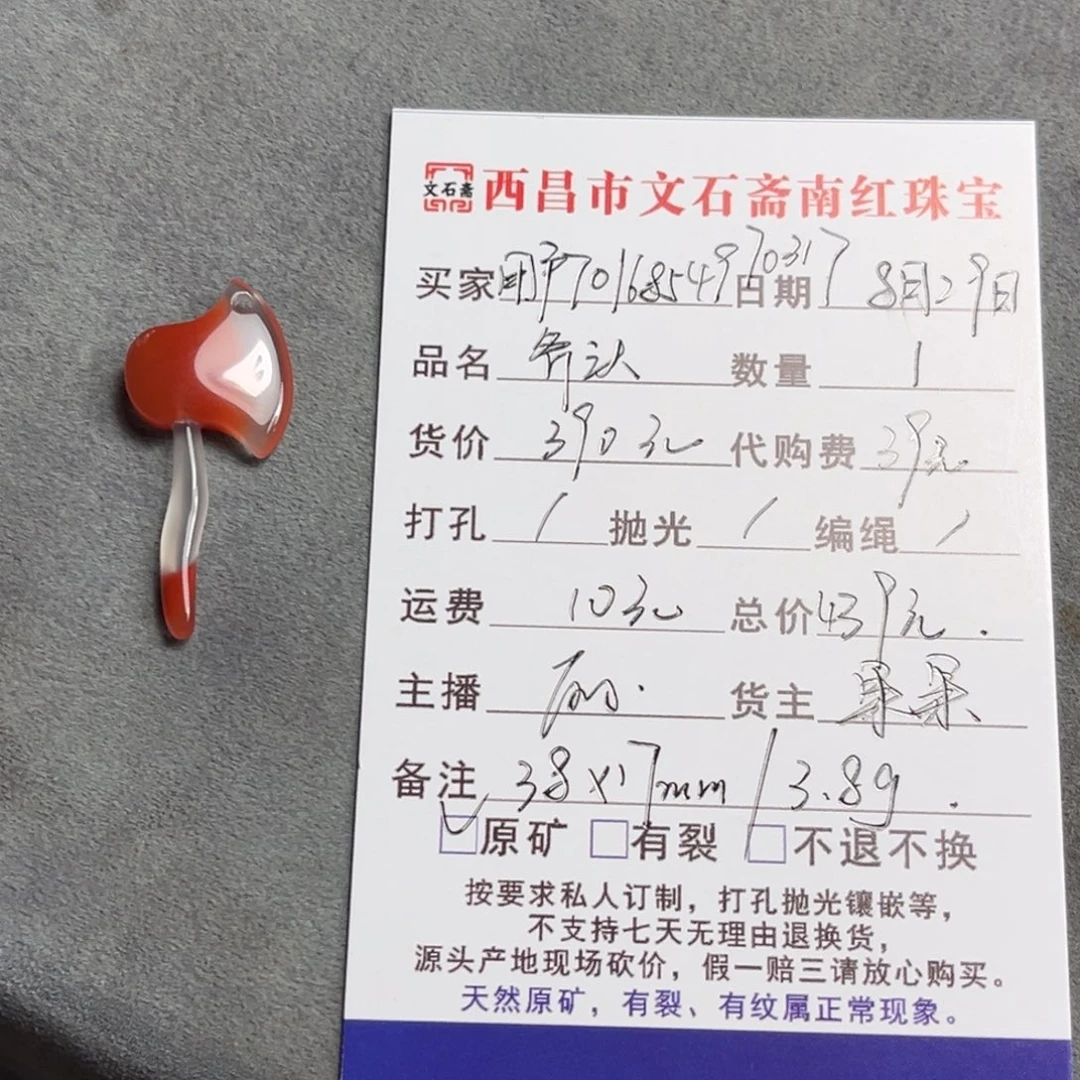 文石斋 西昌市文石斋南红珠宝
买家 用户7016854970317 日期 8月29日
品名 数量 1
货价 390元 代购费 39元.
打孔 / 抛光 / 编绳 /
运费 10元 总价 439元.
主播 货主 果果
备注 38×17mm / 3.8g.
原矿 有裂 不退不换
按要求私人订制，打孔抛光镶嵌等，
不支持七天无理由退换货，
源头产地现场砍价，假一赔三请放心购买。
天然原矿，有裂、有纹属正常现象。